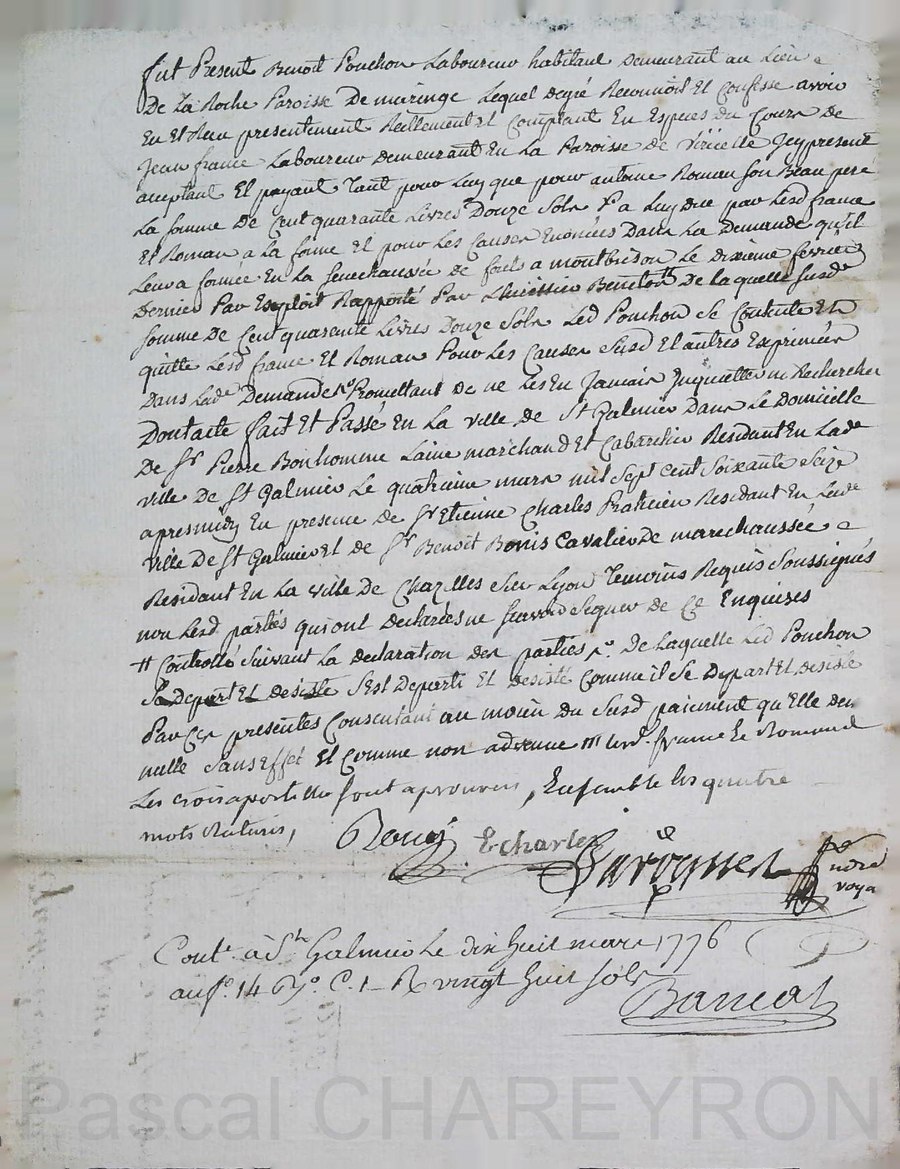 fut Present Benoit Ponchon Laboureur habitant Demeurant au Lieu
De La Roche Paroisse De maringe Lequel degré Reconnoit Et Confesse avoir
Eu Et Reçu presentement Reellement Et Comptant En Especes du Cours De
Jean france Laboureur Demeurant En La Paroisse de Viricelle Jcy present
aceptant Et payant Tant pour Luy que pour antoine Roman son Beau pere
La somme De Cent quarante Livres Douze Sols a Luy Due par Lesd france
Et Roman a La forme Et pour Les Causes Enoncées Dans La Demande qu'il
Leur a formée En La Senechaussée de forest a montbrison Le Dixieme février
Dernier Par Exploit Rapporté Par De Laquelle susde
somme De Cent quarante Livres Douze Sols Led Ponchon Se Contente Et
quitte Lesd france Et Roman Pour Les Causes Susd Et autres Exprimées
Dans Lade Demande Promettant De ne Les En Jamais Inquietter ni Rechercher
Dont acte fait Et Passé En La ville De St Galmier Dans Le Domicille
De Sr Pierre Bonhomme Laine marchand Et Cabaretier Residant En Lade
ville De St Galmier Le quatrieme mars mil Sept Cent Soixante Seize
apres midy En presence De Sr Etienne Charles Praticien Residant En Lade
ville De St Galmier Et de Sr Benoit Bonis Cavalier De marechaussée
Residant En La ville De Chazelles Sur Lyon Temoins Requis Soussignés
non Lesd parties qui ont declarées ne Scavoir Signer de Ce Enquises
# Controllé Suivant La declaration des parties De Laquelle Led Ponchon
Se Depart Et desiste S'est Departi Et désisté Comme il Se Depart Et desiste
Par Ces presentes Consentant au moien Du Susd paiement qu'Elle dem
nulle Sans Effet Et Comme non advenue france Le Romand
Les trois apostilles sont aprouvées, Ensemble les quatre
mots Raturés,
Bonis E charles
Conte à St Galmier Le dix huit mars 1776
au fo. 14 Ro. C. 1 R vingt huit Sols
Pascal CHAREYRON